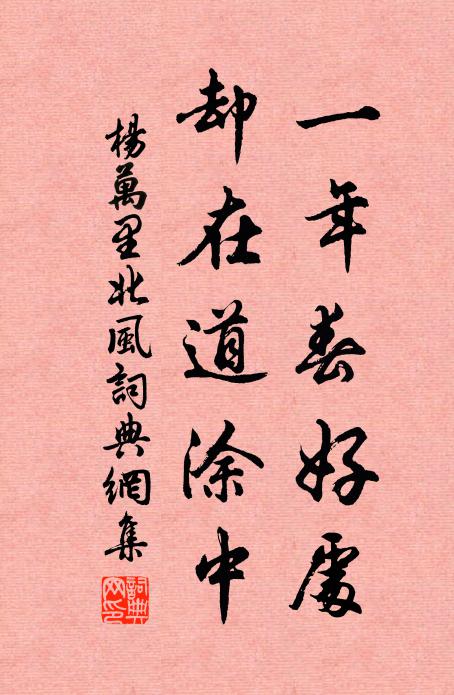 一年春好處
却在道涂中
楊萬里北風詞典網集
詞典網印